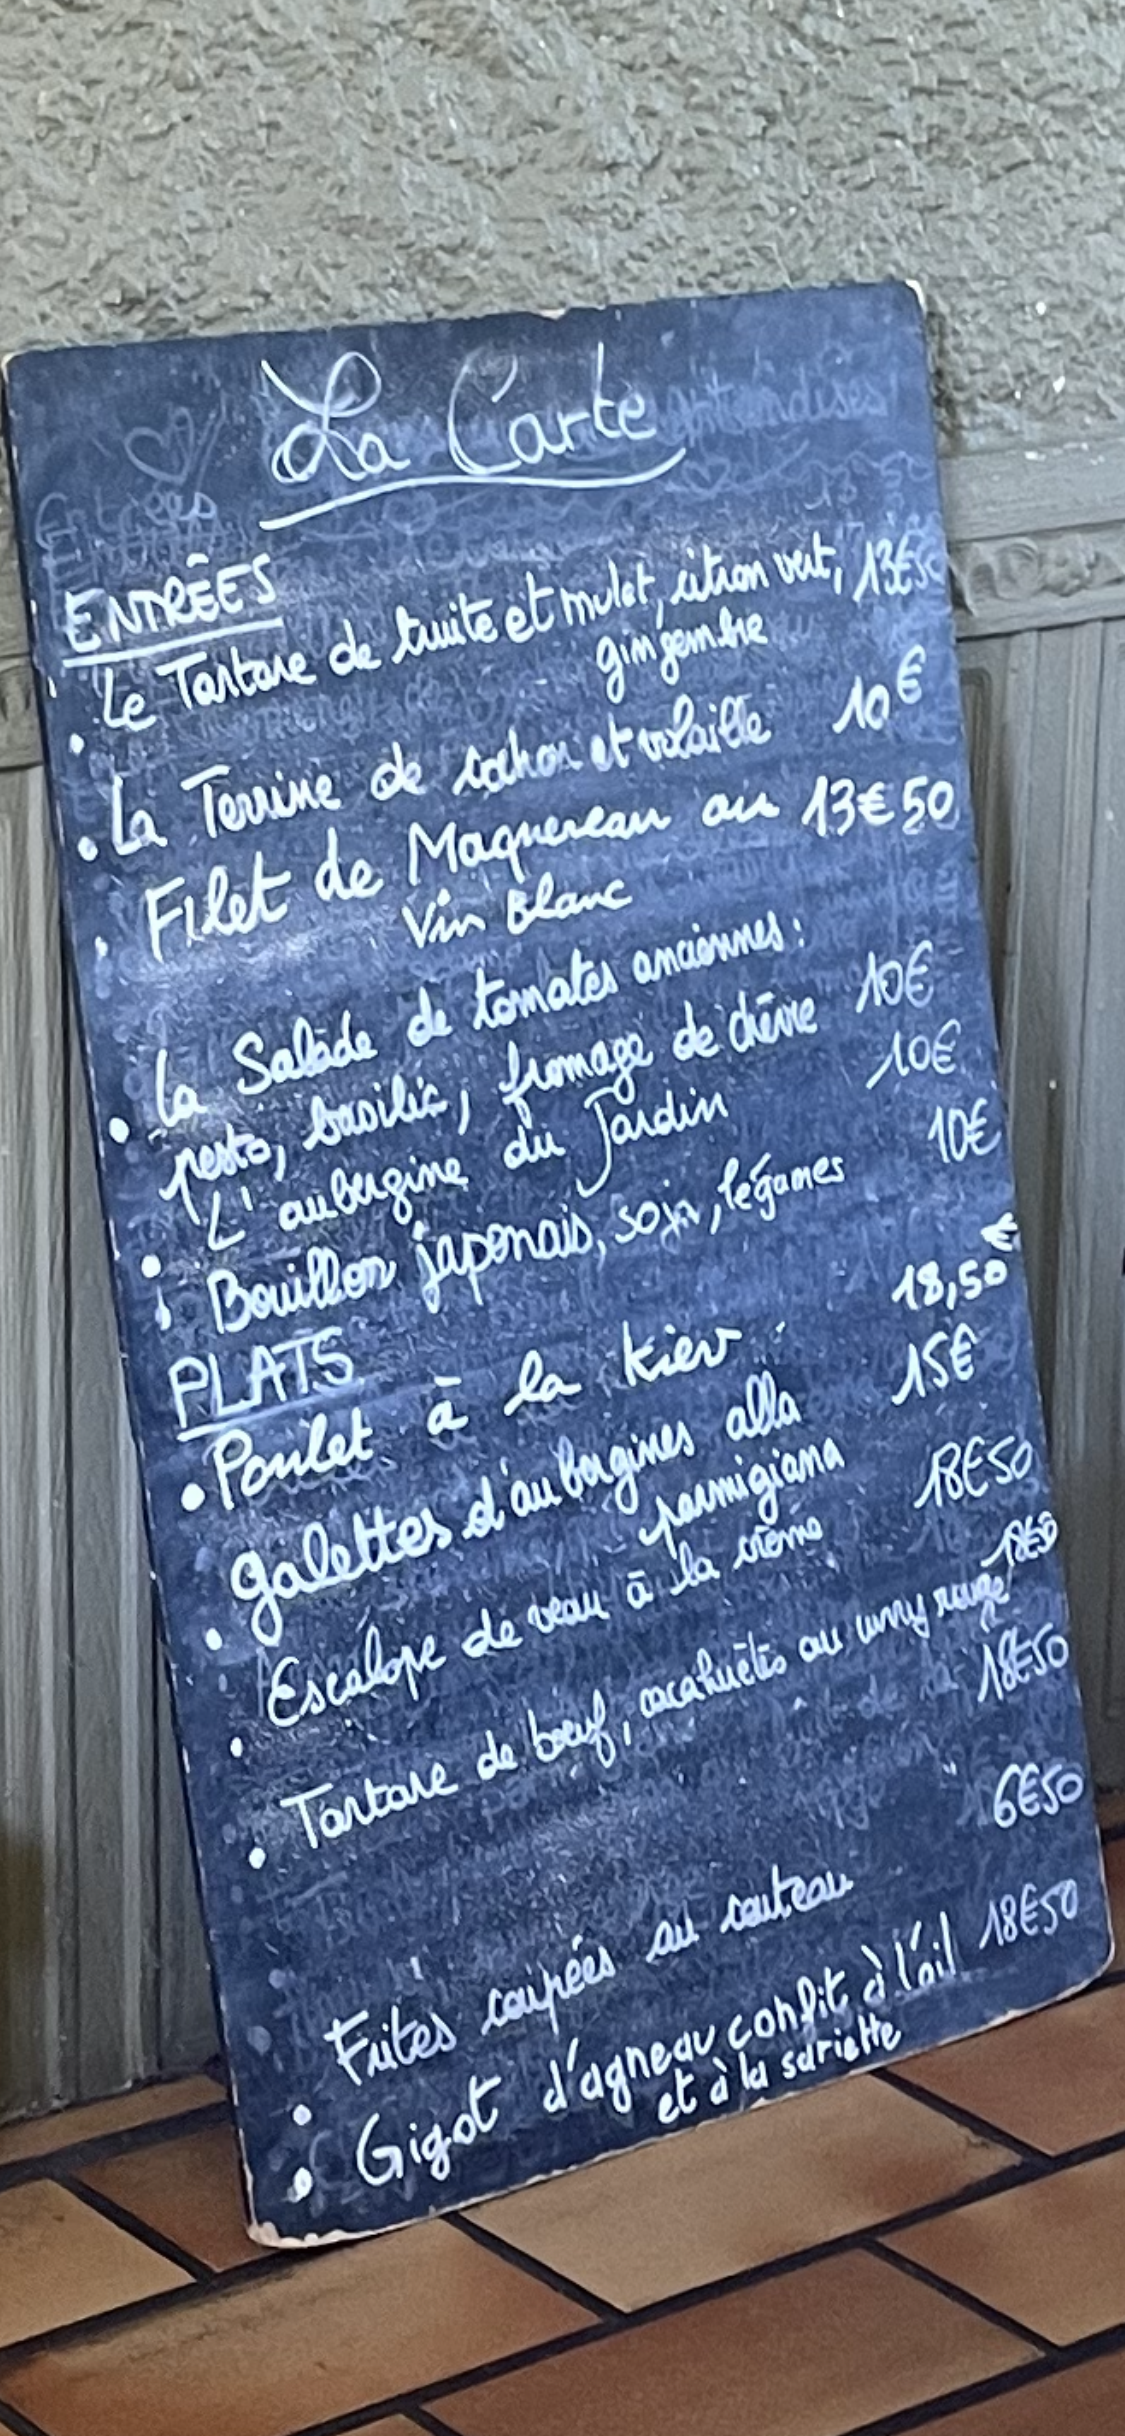 La Carte
ENTRÊES
• Le Tartare de truite et mulet, citron vert, 13€50
gingembre
• La Terrine de cochon et volaille 10€
• Filet de Maquereau au 13€50
Vin Blanc
• La Salade de tomates anciennes :
pesto, basilic, fromage de chèvre 10€
• L'aubergine du Jardin 10€
• Bouillon japonais, soja, légumes 10€
PLATS
• Poulet à la Kiev 18,50€
• galettes d'aubergines alla 15€
parmigiana
• Escalope de veau à la crème 18€50
• Tartare de bœuf, cacahuètes au curry rouge
18€50
• Frites coupées au couteau 6€50
• Gigot d'agneau confit à l'ail 18€50
et à la sariette